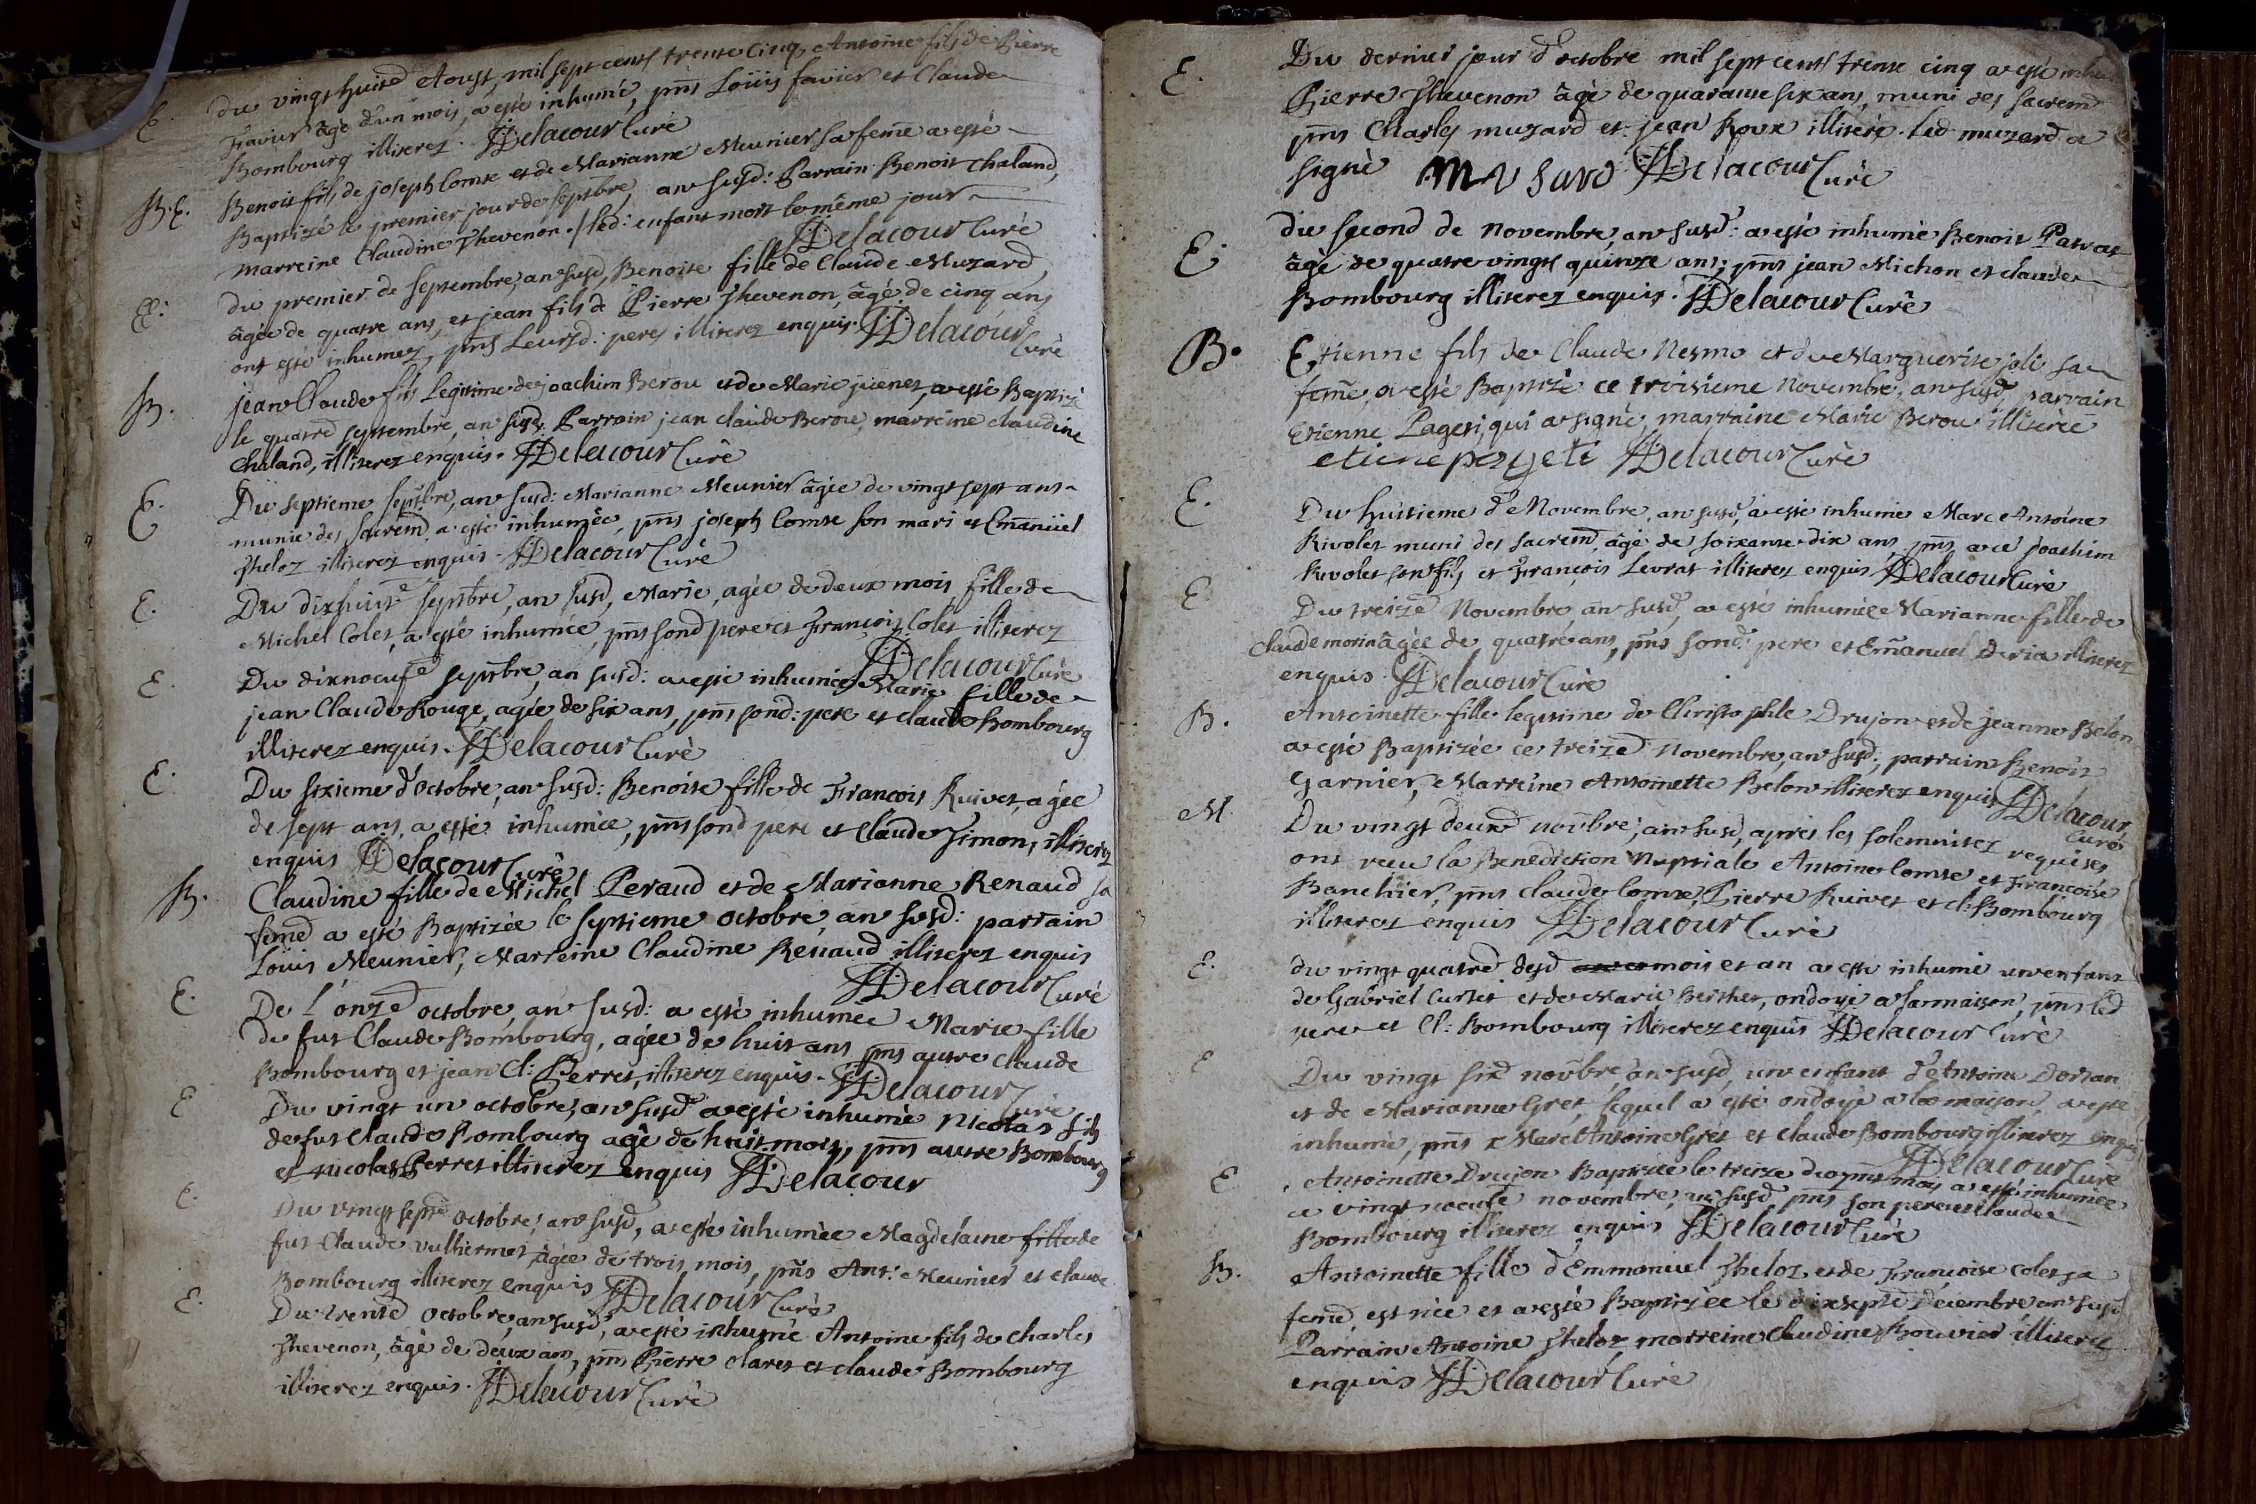 E. du vingt huite Aoust, mil sept cents trente cinq, Antoine fils de Pierre
Favier âgé d'un mois, a esté inhumé, pnts Loüis favier et Claude
Bombourg illiterez. Delacour Curé
B.E. Benoit fils de joseph Comte et de Marianne Meunier sa feme a esté
Baptizé le premier jour de septbre, an susd: Parrain Benoit Chaland,
marreine Claudine Thevenon. / led: enfant mort le même jour
Delacour Curé
E: du premier de septembre, an susd, Benoite fille de Claude Muzard,
âgée de quatre ans, et jean fils de Pierre Thevenon, âgé de cinq ans
ont esté inhumez, pnts Leursd: peres illiterez enquis. Delacour
Curé
B. jean Claude fils Legitime de joachim Berou et de Marie juenet, a esté Baptizé
le quatre septembre, an susd: Parrain jean claude Berou, marreine claudine
Chaland, illiterez enquis. Delacour Curé
E. Du septieme septbre, an susd: Marianne Meunier âgée de vingt sept ans
munie des sacremd a esté inhumée, pnts joseph Comte son mari et Emanüel
Theloz illiterez enquis. Delacour Curé
E. Du dixhuite septbre, an susd, Marie, agée de deux mois, fille de
Michel Colet, a esté inhumée, pnts sond pere et François Colet illiterez
Delacour Curé
E. Du dixnoeufe septbre, an susd: a esté inhumée Marie fille de
jean Claude Rouge, agée de six ans, pnts sond: pere et claude Bombourg
illiterez enquis. Delacour Curé
E. Du sixieme d'Octobre, an susd: Benoite fille de François Ruivet, agée
de sept ans, a esté inhumée, pnts sond pere et Claude Simon, illiterez
enquis Delacour Curé
B. Claudine fille de Michel Peraud et de Marianne Renaud sa
feme a esté Baptizée le septieme octobre, an susd: parrain
Loüis Meunier, Marreine Claudine Renaud illiterez enquis
Delacour Curé
E. De l'onze octobre, an susd: a esté inhumée Marie fille
de fut Claude Bombourg, agée de huit ans pnts autre Claude
Bombourg et jean Cl: Perret, illiterez enquis. Delacour
Curé
E Du vingt un octobre, an susd a esté inhumé Nicolas fils
de fut Claude Bombourg agé de huit mois, pnts autre Bombourg
et nicolas Perret illiterez enquis Delacour
E. Du vingt septe octobre, an susd, a esté inhumée Magdelaine fille de
fut Claude Vulliermet, âgée de trois mois, pnts Ant: Meunier et claude
Bombourg illiterez enquis Delacour Curé
E. Du trente octobre, an susd, a esté inhumé Antoine fils de Charles
Thevenon, âgé de deux ans, pnts Pierre Claret et claude Bombourg
illiterez enquis. Delacour Curé
E. Du dernier jour d'octobre mil sept cents trente cinq a esté inhu
Pierre Thevenon âgé de quarante six ans, muni des sacremd
pnts Charles muzard et jean Roux illiteré. led muzard a
signé MUSARD Delacour Curé
E: du second de Novembre, an susd: a esté inhumé Benoit Patrat
âgé de quatre vingts quinze ans; pnts jean Michon et claude
Bombourg illiterez enquis. Delacour Curé
B. Etienne fils de Claude Nesmo et de Marguerite joli sa
feme a esté Baptizé ce troisieme Novembre, an susd, parrain
Etienne Pageti, qui a signé, marraine Marie Berou illiterée
etiene pageti Delacour Curé
E. Du huitieme de Novembre, an susd, a esté inhumé Marc Antoine
Rivolet muni des sacremd, âgé de soixante dix ans, pnts a ce Joachim
Rivolet son fils et François Levrat illiterez enquis Delacour Curé
E. Du treize Novembre, an susd, a esté inhumée Marianne fille de
Claude morin âgée de quatre ans, pnts sond: pere et Emanuel Deria illiterez
enquis. Delacour Curé
B. Antoinette fille legitime de Christophle Drujon et de jeanne Belon
a esté Baptizée ce treize Novembre, an susd: parrain Benoit
Garnier, Marreine Antoinette Belon illiterez enquis Delacour
Curé
M. Du vingt deuxe novbre, an susd, après les solemnitez requises
ont receu la Benediction Nuptiale Antoine Comte et Françoise
Banchier, pnts claude Comte, Pierre Ruivet et cl: Bombourg
illiterez enquis Delacour Curé
E. du vingt quatre desd mois et an a esté inhumé un enfant
de Gabriel Curtet et de Marie Berthet, ondoyé a la maison, pnts led
pere et Cl: Bombourg illiterez enquis Delacour Curé
E Du vingt sixe novbre an susd, un enfant d'Antoine Dorian
et de Marianne Gret, lequel a esté ondoyé a la maison, a esté
inhumé, pnts Marc Antoine Gret et claude Bombourg illiterez enquis
Delacour Curé
E Antoinette Drujon Baptizée le treize du pnt mois a esté inhumée
ce vingt noeufe novembre, an susd pnts son pere et Claude
Bombourg illiterez enquis Delacour Curé
B. Antoinette fille d'Emmanuel Theloz et de Françoise Colet sa
feme, est née et a esté Baptizée le dixsepte Decembre an susd
Parrain Antoine Theloz, marreine Claudine Bouvier illiterez
enquis Delacour Curé